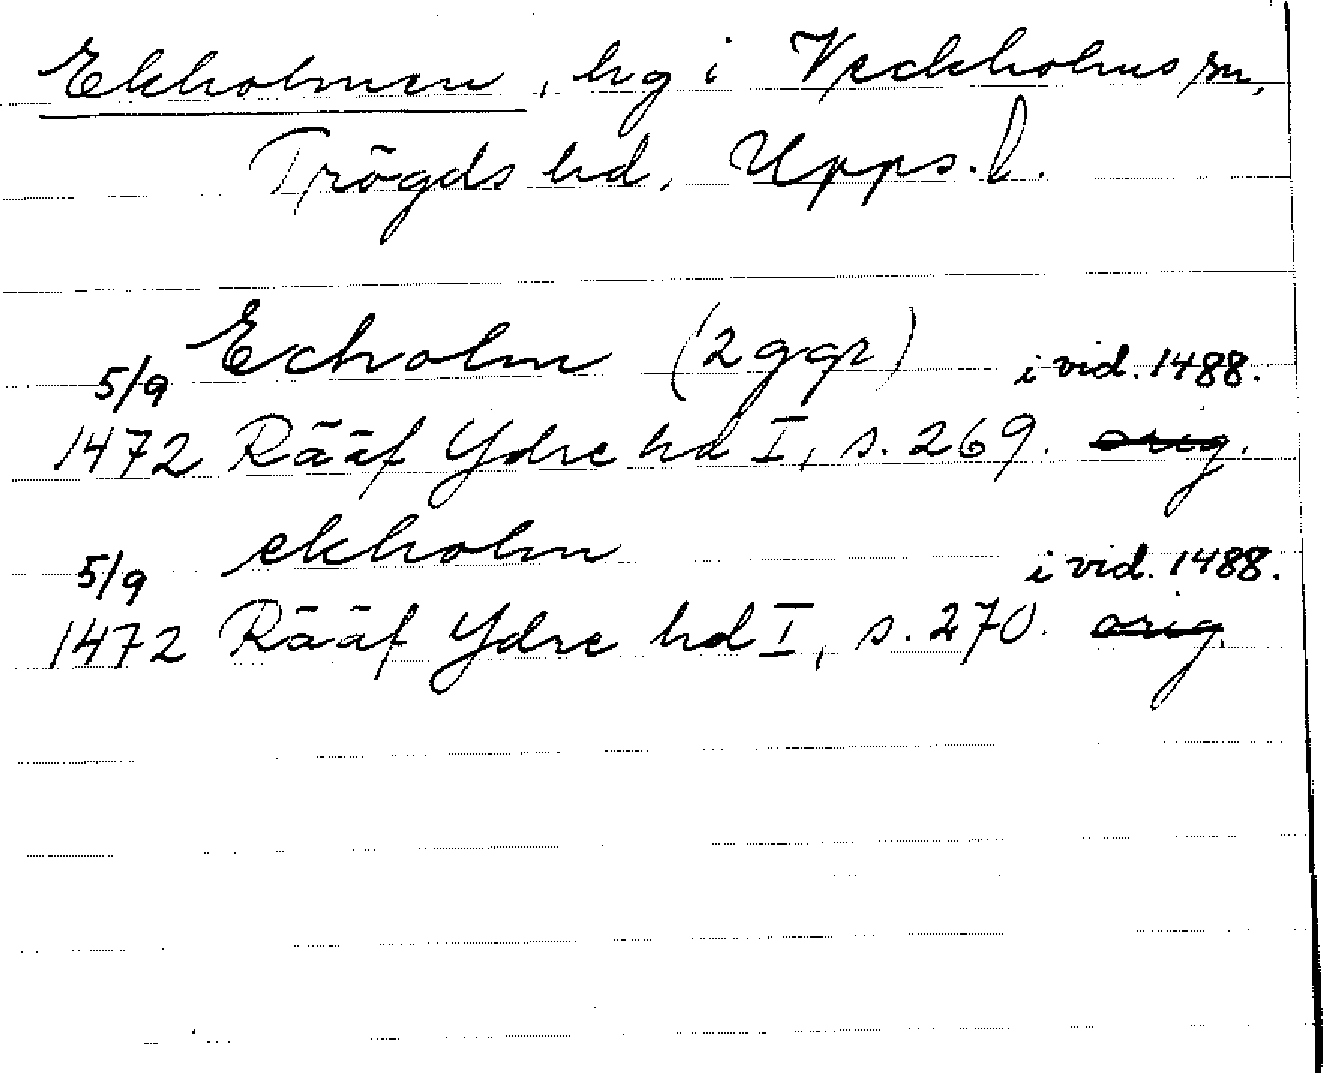 Ekholmen, hg i Veckholms sn,
Trögds hd, Upps. l.
Echolm (2 ggr) i vid. 1488.
5/9
1472 Rääf Ydre hd I, s. 269. orig.
ekholm i vid. 1488.
5/9
1472 Rääf Ydre hd I, s. 270. orig.